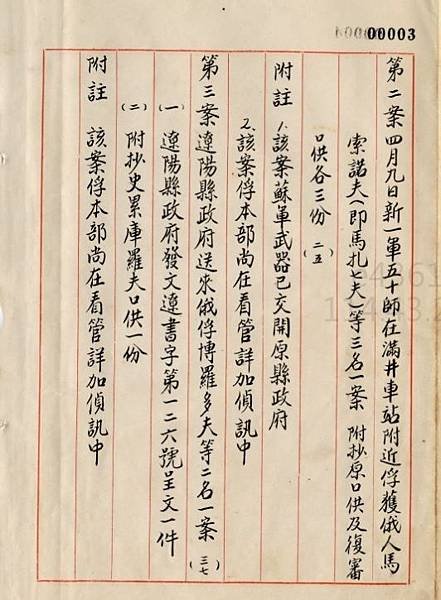 00003
第二案 四月九日新一軍五十師在滿井車站附近俘獲俄人馬
索諾夫(即馬扎七夫)等三名一案 附抄原口供及復審
口供各三份(二五)
附註 1.該案蘇軍武器已交開原縣政府
2.該案俘本部尚在看管詳加偵訊中
第三案 遼陽縣政府送來俄俘博羅多夫等二名一案(三七)
(一)遼陽縣政府發文遼書字第一二六號呈文一件
(二)附抄史累庫羅夫口供一份
附註 該案俘本部尚在看管詳加偵訊中